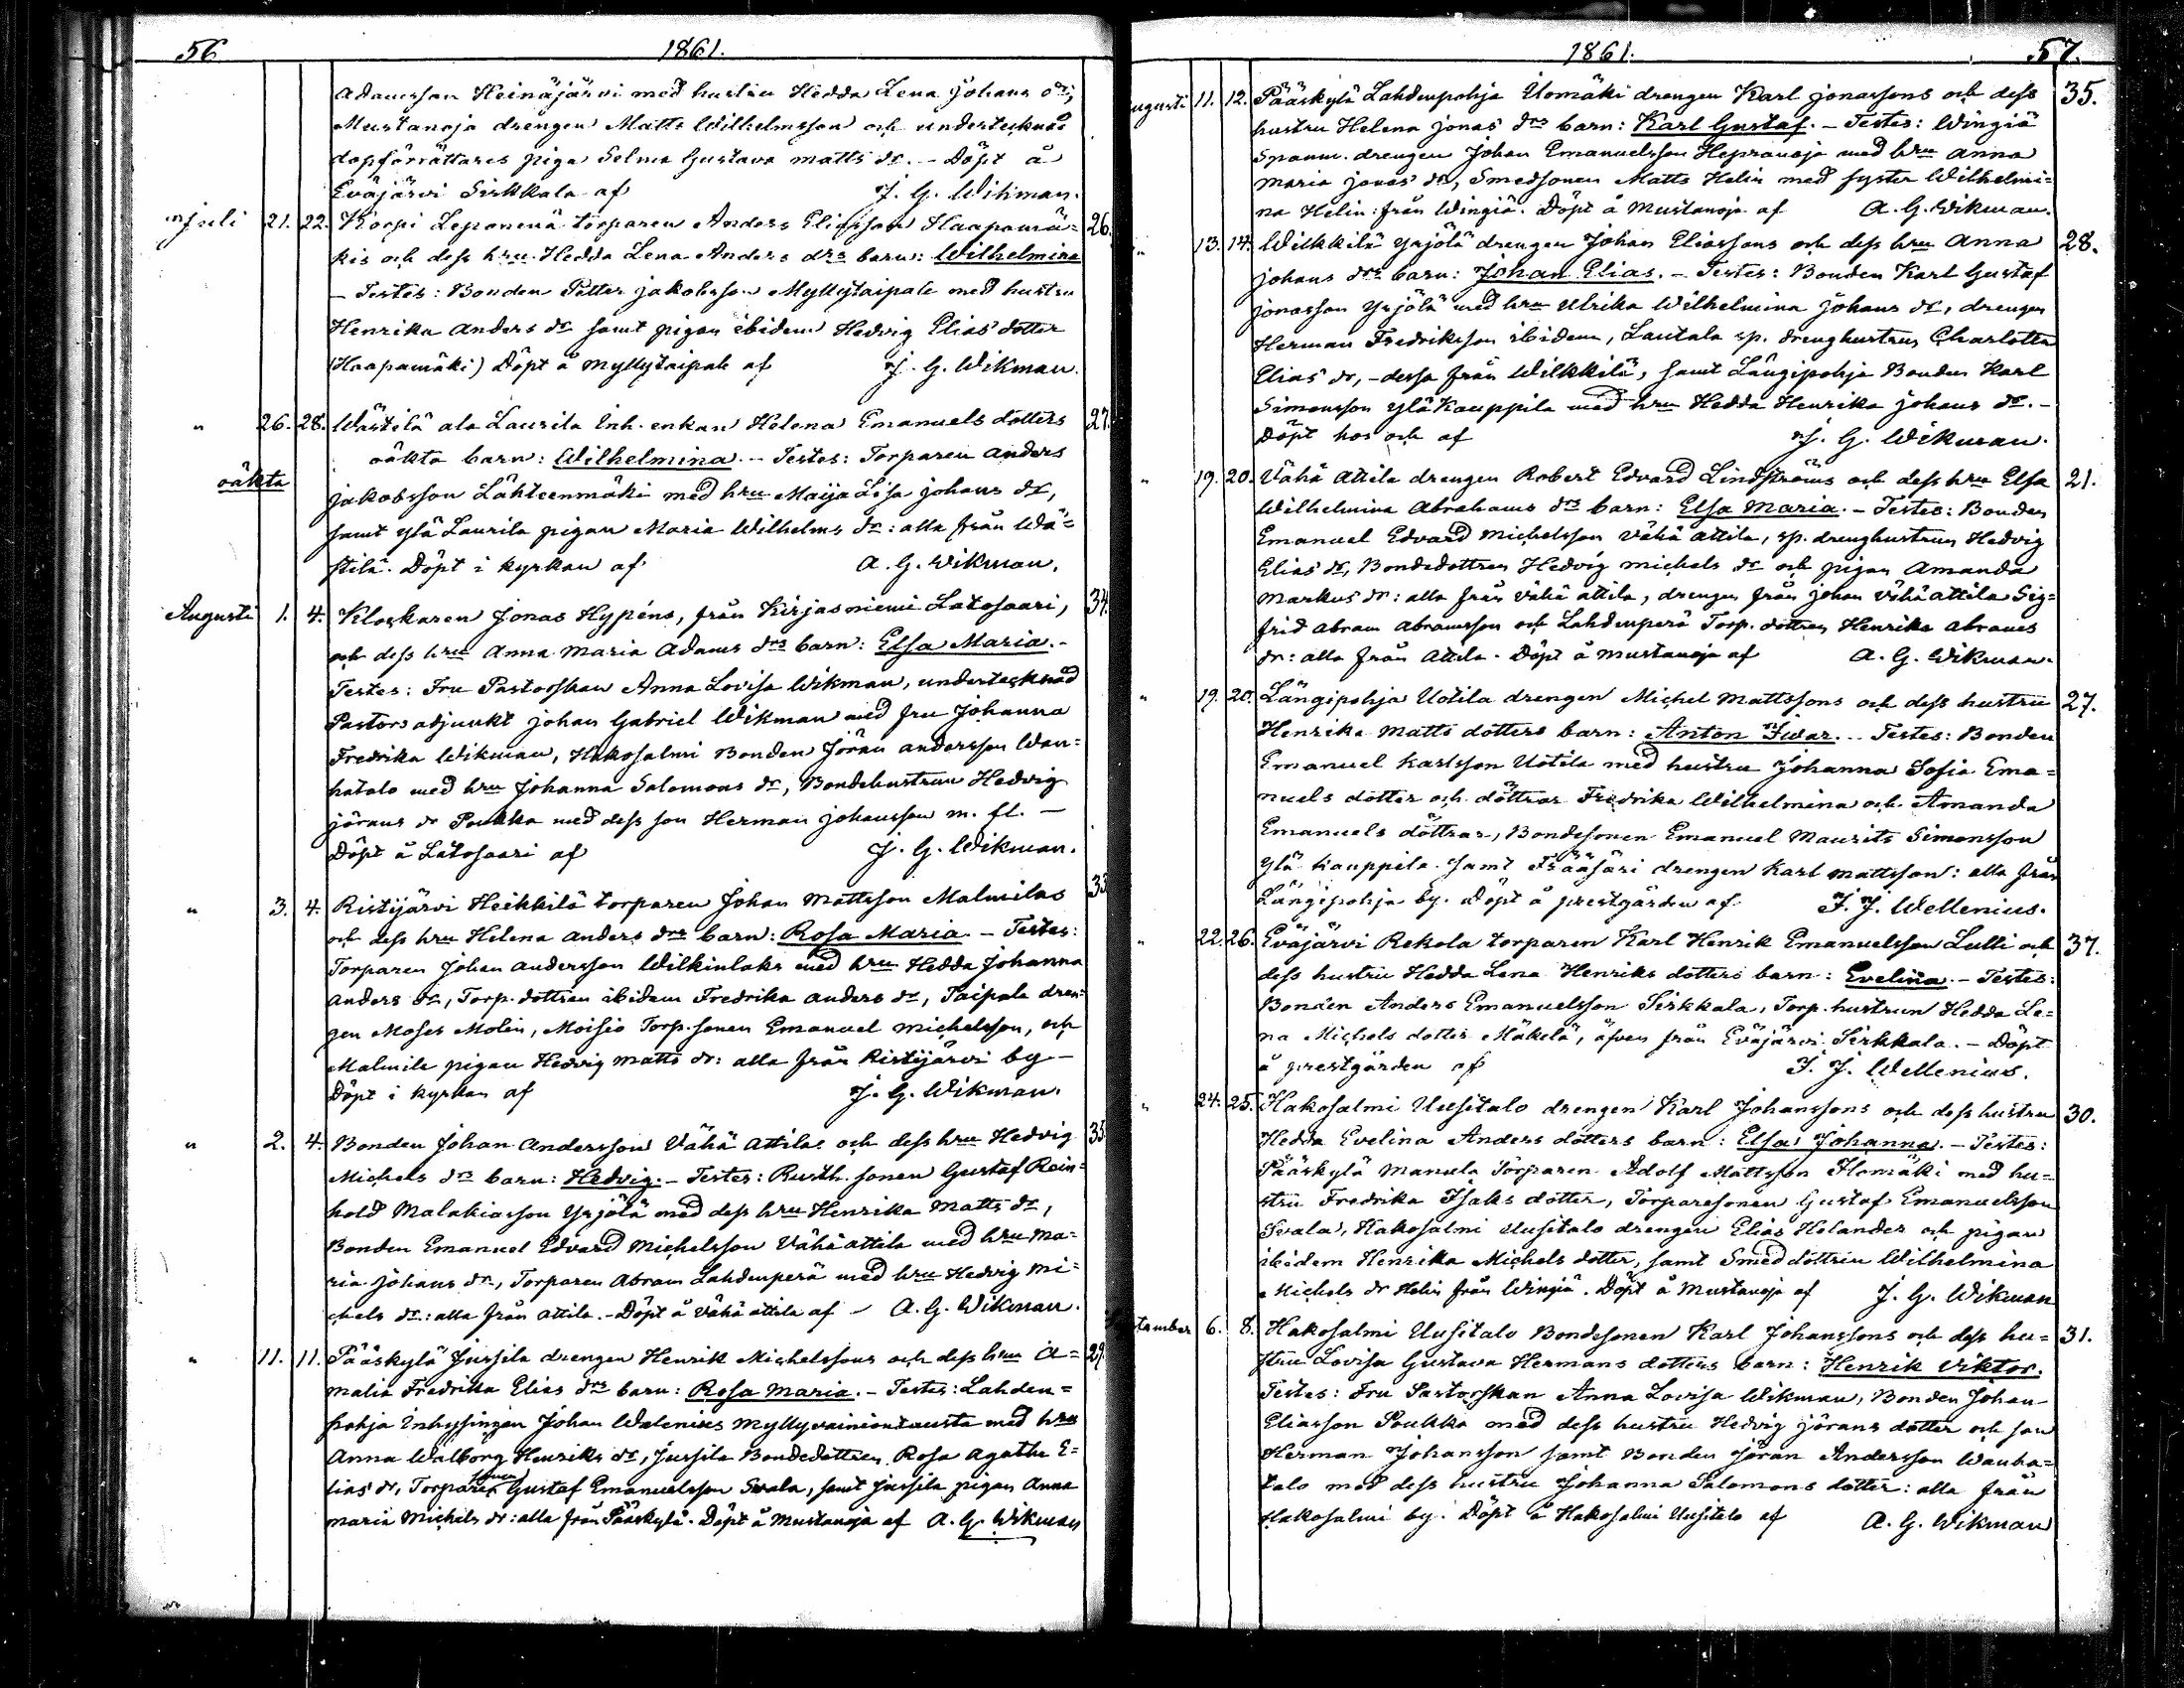 56 1861.
Adamsson Heinäjärvi med hustru Hedda Lena Johans dr,
Mustanoja drengen Matts Wilhelmsson och undertecknad
dopförrättares piga Selma Gustava Matts dr. – Döpt å
Eväjärvi Sirkkala af J. G. Wikman.
Juli 21. 22. Korpi Leponenä torparen Anders Eliasson Haapamä= 26.
kis och dess hru Hedda Lena Anders drs barn: Wilhelmina
– Testes: Bonden Petter Jakobsson Myllytaipale med hustru
Henrika Anders dr samt pigan ibidem Hedvig Elias dotter
(Haapamäki) Döpt å Myllytaipale af J. G. Wikman.
" 26. 28. Wästilä ala Laurila Inh. enkan Helena Emanuels dotters 27.
oäkta oäkta barn: Wilhelmina. – Testes: Torparen Anders
Jakobsson Lähteenmäki med hru Maija Lisa Johans dr,
samt ylä Laurila pigan Maria Wilhelms dr: alla från Wä=
stilä. Döpt i kyrkan af A. G. Wikman.
Augusti 1. 4. Klockaren Jonas Hypéns, från Kirjasniemi Latosaari, 34.
och dess hru Anna Maria Adams drs barn: Elsa Maria. –
Testes: Fru Pastorskan Anna Lovisa Wikman, undertecknad
Pastorsadjunkt Johan Gabriel Wikman med fru Johanna
Fredrika Wikman, Hakosalmi Bonden Jöran Andersson Wan=
hatalo med hru Johanna Salomons dr, Bondehustrun Hedvig
Jörans dr Poukka med dess son Herman Johansson m. fl. –
Döpt å Latosaari af J. G. Wikman.
" 3. 4. Ristijärvi Heikkilä torparen Johan Mattsson Malmilas 33
och dess hru Helena Anders drs barn: Rosa Maria. – Testes:
Torparen Johan Andersson Wilkinlaks med hru Hedda Johanna
Anders dr, Torp. dottren ibidem Fredrika Anders dr, Taipale dren=
gen Moses Molin, Moisio Torp. sonen Emanuel Michelsson, och
Malmila pigan Hedvig Matts dr: alla från Ristijärvi by –
Döpt i kyrkan af J. G. Wikman.
" 2. 4. Bonden Johan Andersson Vähä Attilas och dess hru Hedvig 35
Michels drs barn: Hedvig. – Testes: Rusth. sonen Gustaf Rein=
hold Malakiasson Yrjölä med dess hru Henrika Matts dr,
Bonden Emanuel Edvard Michelsson Vähä Attila med hru Ma=
ria Johans dr, Torparen Abram Lahdenperä med hru Hedvig Mi=
chels dr: alla från Attila. – Döpt å Vähä Attila af – A. G. Wikman.
" 11. 11. Pääskylä Jussila drengen Henrik Michelssons och dess hru A= 29.
malia Fredrika Elias drs barn: Rosa Maria. – Testes: Lahden=
pohja Inhysingen Johan Walenius Myllyvainiontausta med hru
Anna Walborg Henriks dr, Jussila Bondedottren Rosa Agatha E=
lias dr, Torparesonen Gustaf Emanuelsson Svala, samt Jussila pigan Anna
Maria Michels dr: alla från Pääskylä. Döpt å Mustanoja af A. G. Wikman
1861. 57.
Augusti 11. 12. Pääskylä Lahdenpohja Uomäki drengen Karl Jonassons och dess 35.
hustru Helena Jonas drs barn: Karl Gustaf. – Testes: Wingiä
Spanm. drengen Johan Emanuelsson Hepranoja med hru Anna
Maria Jonas dr, Smedsonen Matts Helin med syster Wilhelmi=
na Helin: från Wingiä. Döpt å Mustanoja af A. G. Wikman.
" 13. 14. Wilkkilä Yrjölä drengen Johan Eliassons och dess hru Anna 28.
Johans drs barn: Johan Elias. – Testes: Bonden Karl Gustaf
Jonasson Yrjölä med hru Ulrika Wilhelmina Johans dr, drengen
Herman Fredriksson ibidem, Lautala sp. drenghustrun Charlotta
Elias dr, – dessa från Wilkkilä, samt Längipohja Bonden Karl
Simonsson Ylä Kauppila med hru Hedda Henrika Johans dr. –
Döpt hos och af J. G. Wikman.
" 19. 20. Vähä Attila drengen Robert Edvard Lindströms och dess hru Elsa 21.
Wilhelmina Abrahams drs barn: Elsa Maria. – Testes: Bonden
Emanuel Edvard Michelsson Vähä Attila, sp. drenghustrun Hedvig
Elias dr, Bondedottren Hedvig Michels dr och pigan Amanda
Markus dr: alla från Vähä Attila, drengen från Johan Vähä Attila Sig=
frid Abram Abramsson och Lahdenperä Torp. dottren Henrika Abrams
dr: alla från Attila. Döpt å Mustanoja af A. G. Wikman.
" 19. 20. Längipohja Uotila drengen Michel Mattssons och dess hustru 27.
Henrika Matts dotters barn: Anton Iwar. – Testes: Bonden
Emanuel Karlsson Uotila med hustru Johanna Sofia Ema=
nuels dotter och döttrar Fredrika Wilhelmina och Amanda
Emanuels döttrar, Bondesonen Emanuel Maurits Simonsson
Ylä Kauppila samt drengen Karl Mattsson: alla från
Längipohja by. Döpt å prestgården af F. J. Wellenius.
" 22. 26. Eväjärvi Rekola torparen Karl Henrik Emanuelsson Lulli och 37.
dess hustru Hedda Lena Henriks dotters barn: Evelina. – Testes:
Bonden Anders Emanuelsson Sirkkala, Torp. hustrun Hedda Le=
na Michels dotter Mäkelä, äfven från Eväjärvi Sirkkala. – Döpt
å prestgården af F. J. Wellenius.
" 24. 25. Hakosalmi Uusitalo drengen Karl Johanssons och dess hustru 30.
Hedda Evelina Anders dotters barn: Elsa Johanna. – Testes:
Pääskylä Manula Torparen Adolf Mattsson Homäki med hu=
stru Fredrika Isaks dotter, Torparesonen Gustaf Emanuelsson
Svala, Hakosalmi Uusitalo drengen Elias Helander och pigan
ibidem Henrika Michels dotter, samt Smeddottren Wilhelmina
Michels dr Helin från Wingiä. Döpt å Mustanoja af J. G. Wikman
September 6. 8. Hakosalmi Uusitalo Bondesonen Karl Johanssons och dess hu= 31.
stru Lovisa Gustava Hermans dotters barn: Henrik Viktor.
Testes: Fru Pastorskan Anna Lovisa Wikman, Bonden Johan
Eliasson Poukka med dess hustru Hedvig Jörans dotter och son
Herman Johansson samt Bonden Jöran Andersson Wanha=
talo med dess hustru Johanna Salomons dotter: alla från
Hakosalmi by. Döpt å Hakosalmi Uusitalo af A. G. Wikman